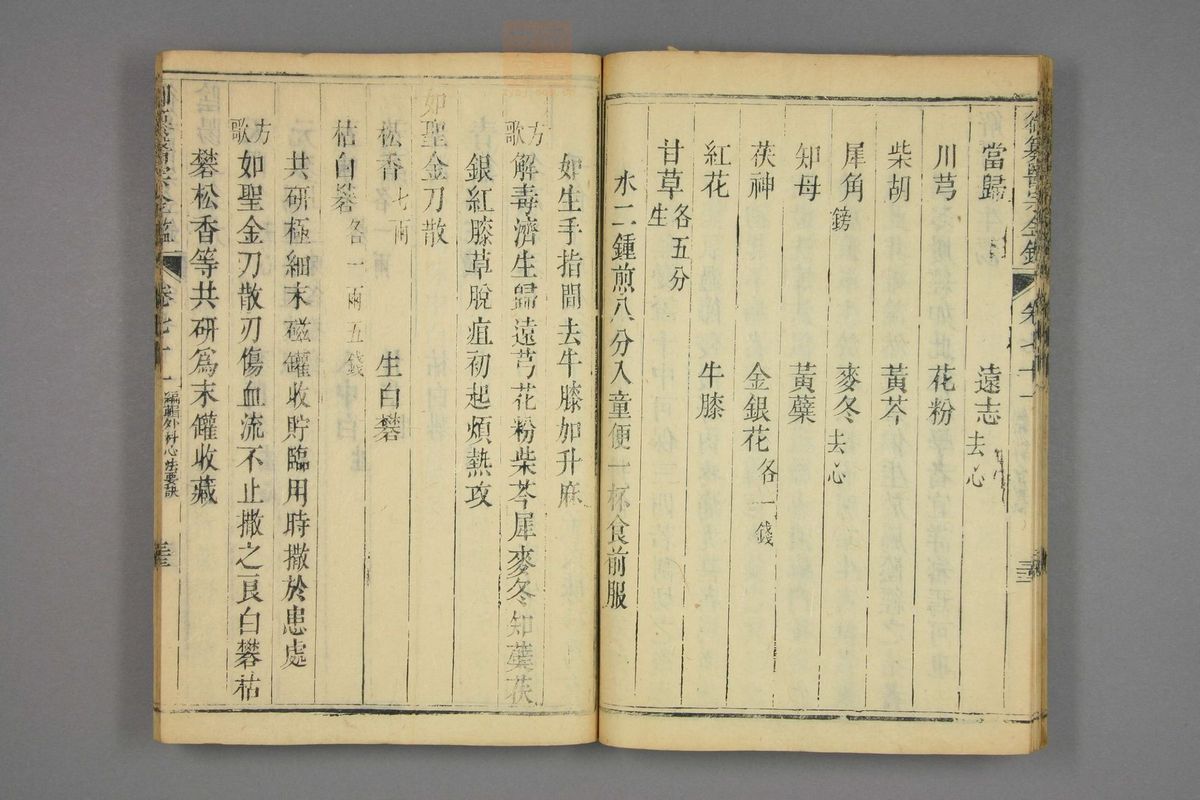 御纂醫宗金鑑 卷七十一
當歸 遠志去心
川芎 花粉
柴胡 黃芩
犀角鎊 麥冬去心
知母 黃蘗
茯神 金銀花各一錢
紅花 牛膝
甘草生各五分
水二鍾煎八分入童便一杯食前服
如生手指間去牛膝加升麻
方歌 解毒濟生歸遠芎花粉柴芩犀麥冬知蘗茯
銀紅膝草脫疽初起煩熱攻
如聖金刀散
松香七兩 生白礬
枯白礬各一兩五錢
共研極細末磁罐收貯臨用時撒於患處
方歌 如聖金刀散刃傷血流不止撒之良白礬枯
礬松香等共研為末罐收藏
御纂醫宗金鑑 卷七十一 編輯外科心法要訣